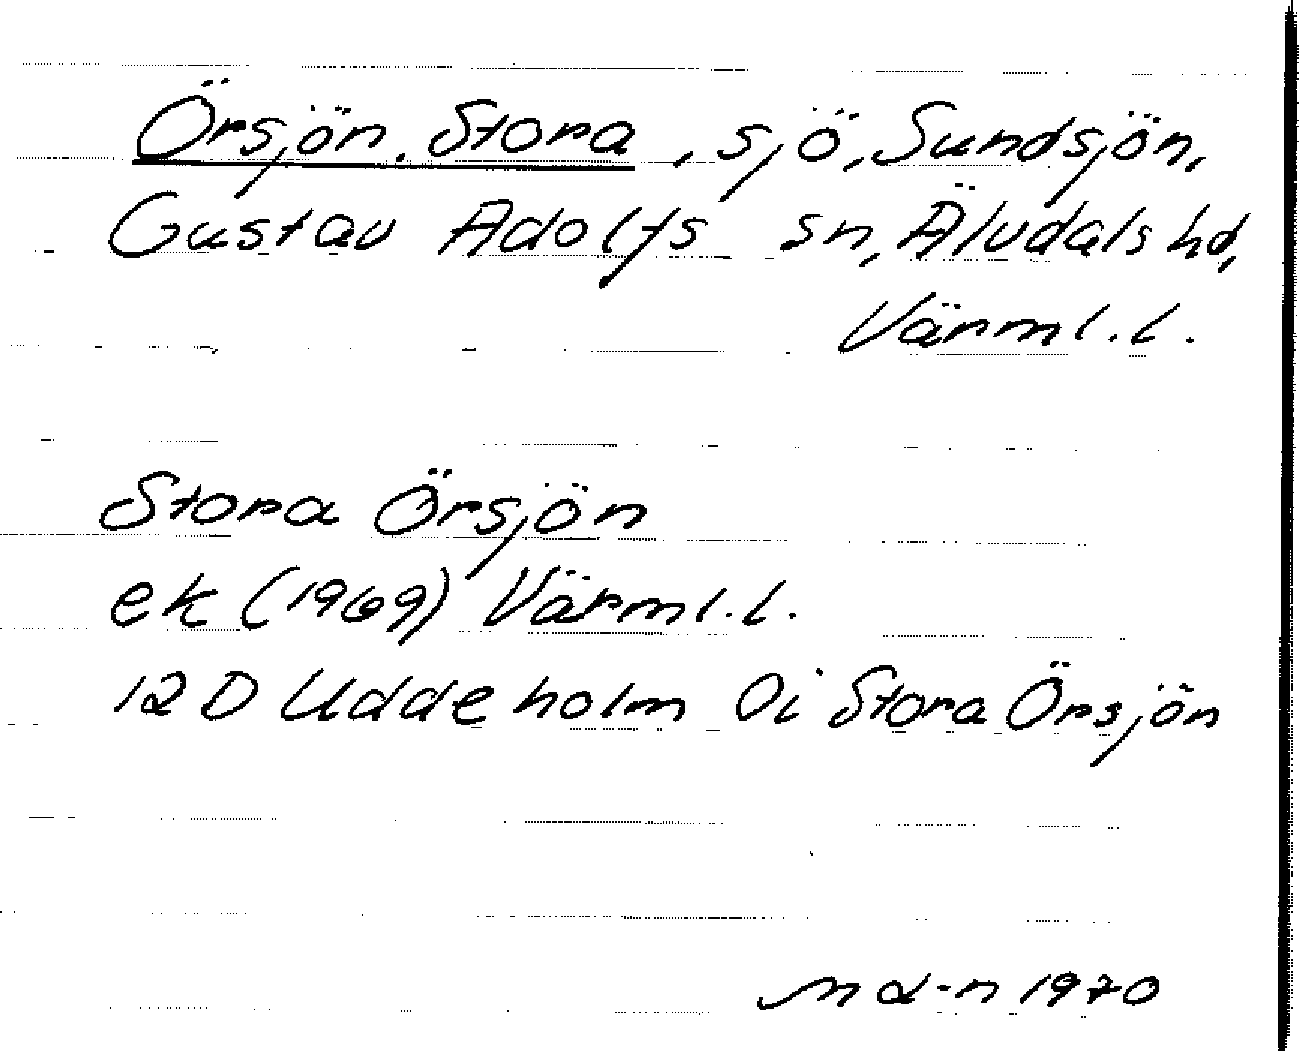 Örsjön, Stora, sjö, Sundsjön,
Gustav Adolfs sn, Älvdals hd,
Värml. l.
Stora Örsjön
ek (1969) Värml. l.
12 D Uddeholm 0i Stora Örsjön
1970